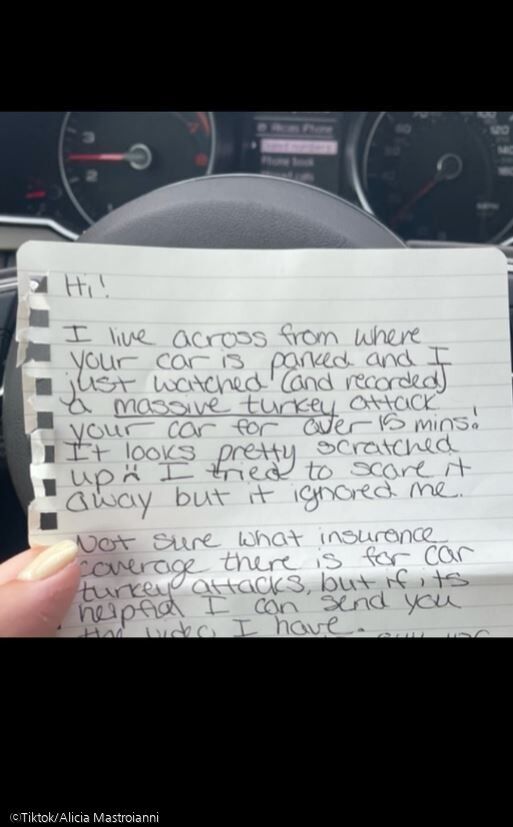 Hi!
I live across from where
your car is parked and I
just watched (and recorded)
a massive turkey attack
your car for over 15 mins!
It looks pretty scratched
up I tried to scare it
away but it ignored me.
Not sure what insurance
coverage there is for car
turkey attacks, but if its
helpful I can send you
the video I have.
3
2
Phone book
120
©Tiktok/Alicia Mastroianni